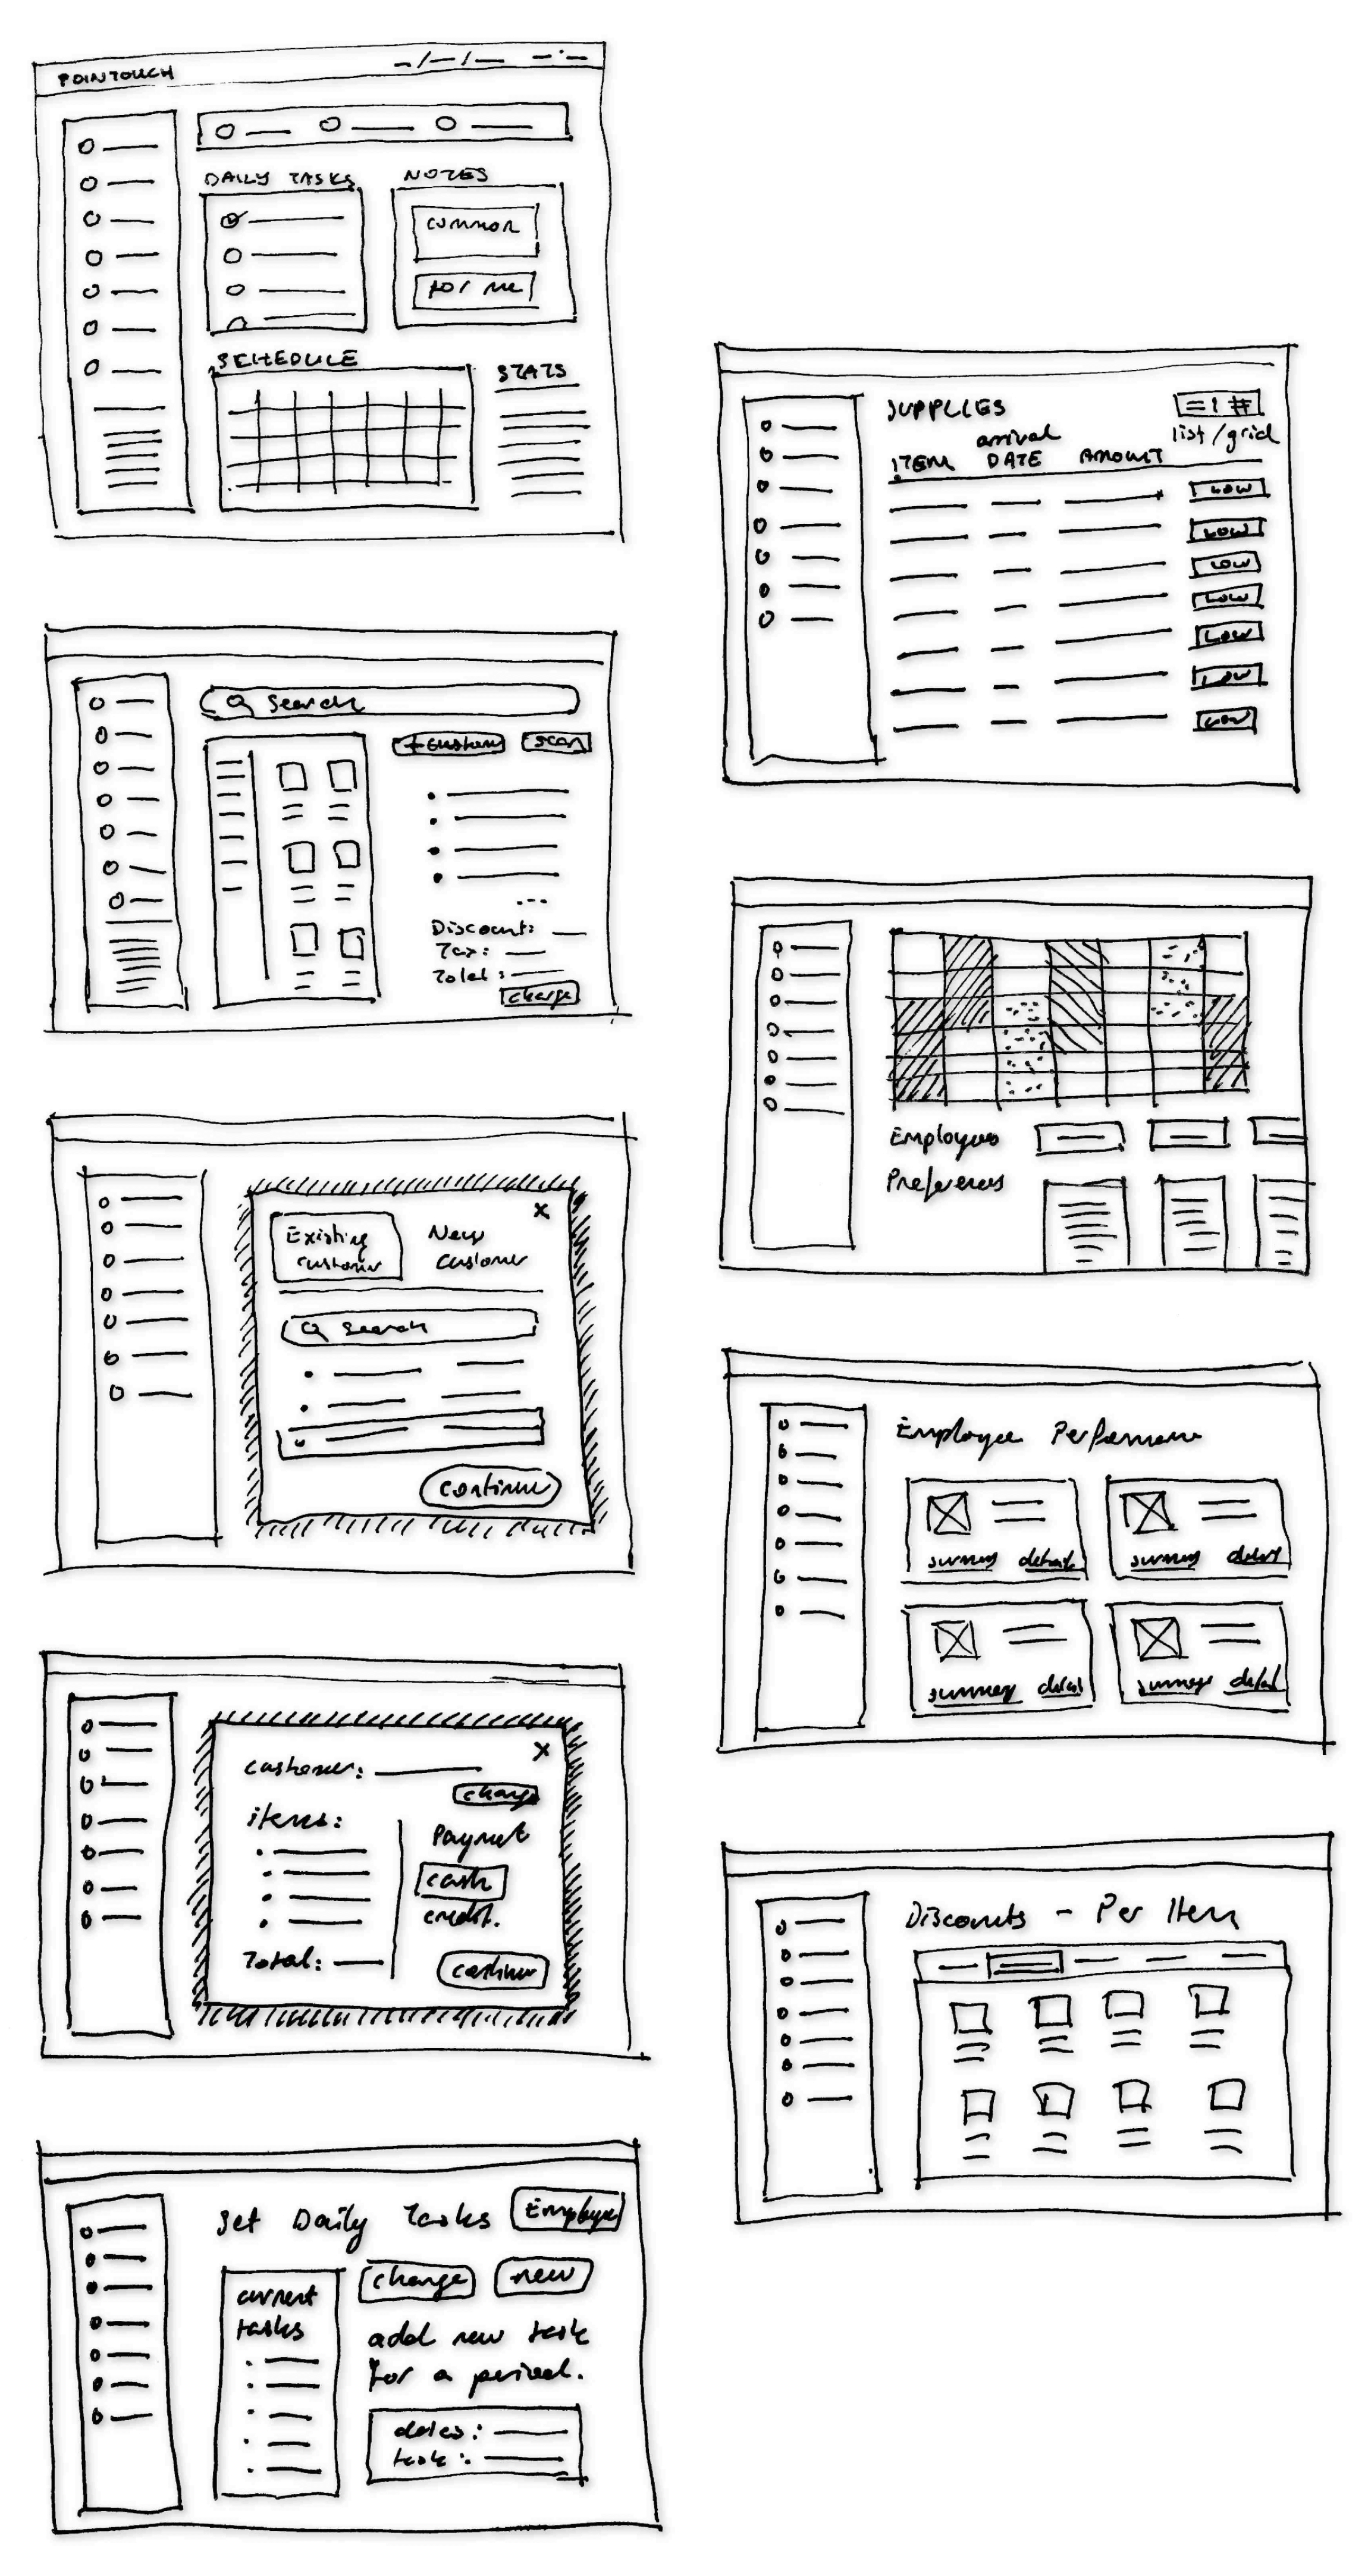 POINTOUCH
DAILY TASKS
NOTES
common
for me
SCHEDULE
STATS
Search
+ custom
scan
Discount:
Tax:
Total:
charge
Existing
customer
New
customer
x
Search
continue
x
customer:
items:
Payment
cash
credit.
Total:
Set Daily Tasks
Employee
current
tasks
change
new
add new task
for a period.
dates:
task:
SUPPLIES
list/grid
ITEM
arrival
DATE
AMOUNT
LOW
LOW
LOW
LOW
LOW
LOW
LOW
Employees
Preferences
Employee Performance
summary details
summary detail
summary detail
summary detail
Discounts - Per Item